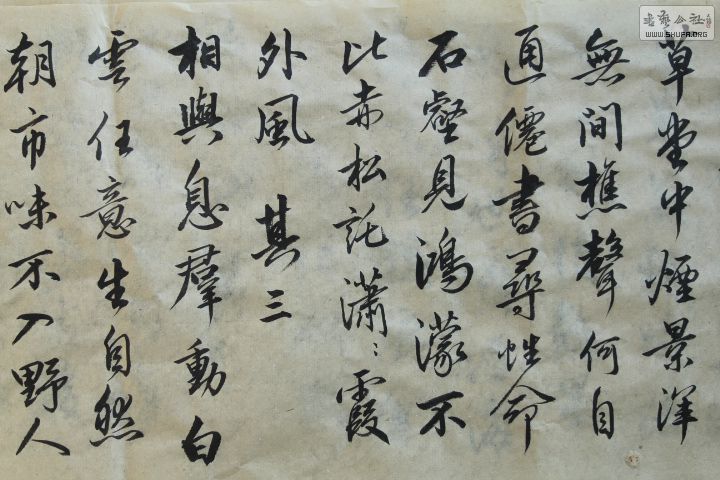 草堂中煙景深
無間樵聲何自
通僊書尋性命
石壑見鴻濛不
比赤松託瀟〻霞
外風 其三
相與息羣動白
雲任意生自然
朝市味不入野人
書藝公社
WWW.SHUFA.ORG